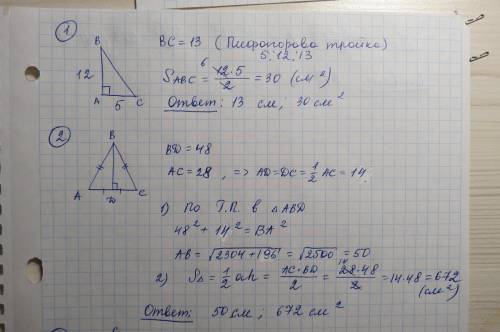 1
B
12
A 5 C
BC = 13 (Пифагорова тройка)
5; 12; 13
6
S ABC = 12·5/2 = 30 (см²)
Ответ: 13 см; 30 см²
2
B
A D C
BD = 48
AC = 28, => AD = DC = 1/2 AC = 14.
1) По Т.П. в △ABD
48² + 14² = BA²
AB = √2304+196 = √2500 = 50
2) S△ = 1/2 ah = AC·BD/2 = 28·48/2 = 14·48 = 672
14
(см²)
Ответ: 50 см; 672 см²